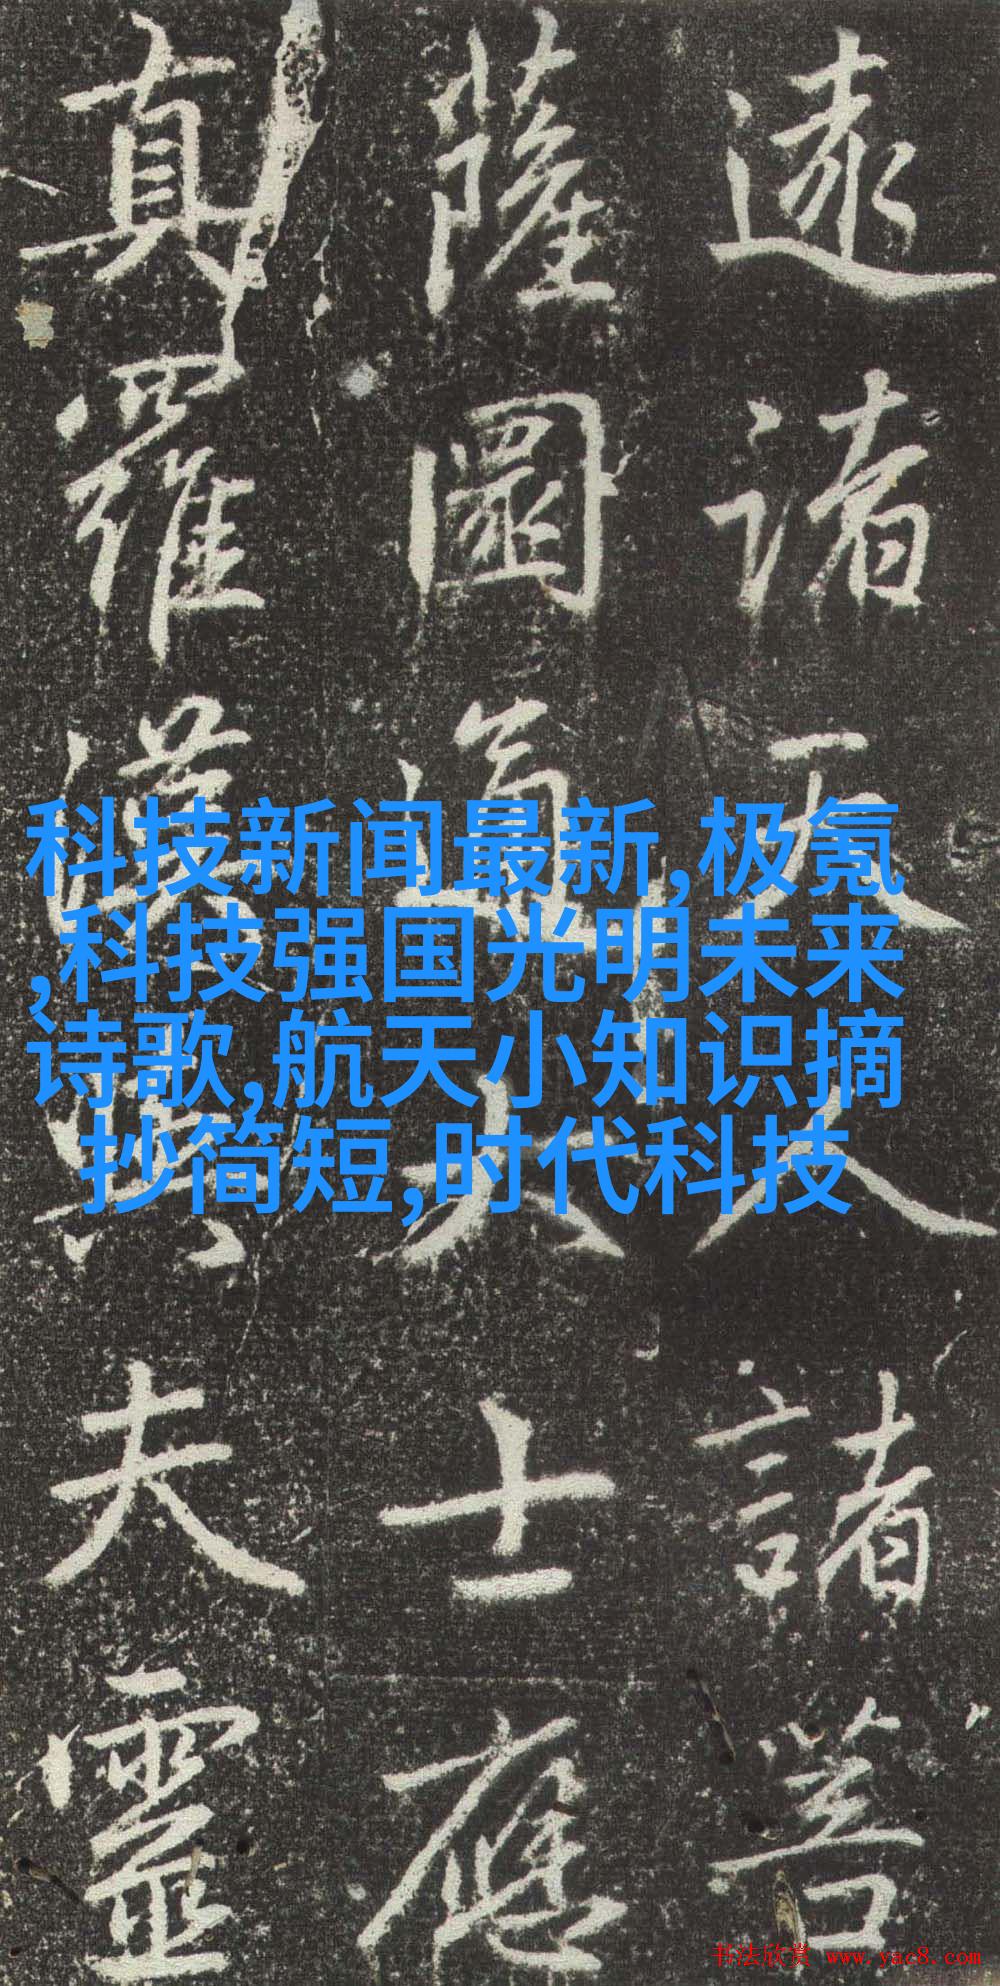 逮諸天人諸菩
薩圜通大士應
真羅漢與夫靈
科技新闻最新,极氪
,科技强国光明未来
诗歌,航天小知识摘
抄简短,时代科技
书法欣赏 www.yac8.com